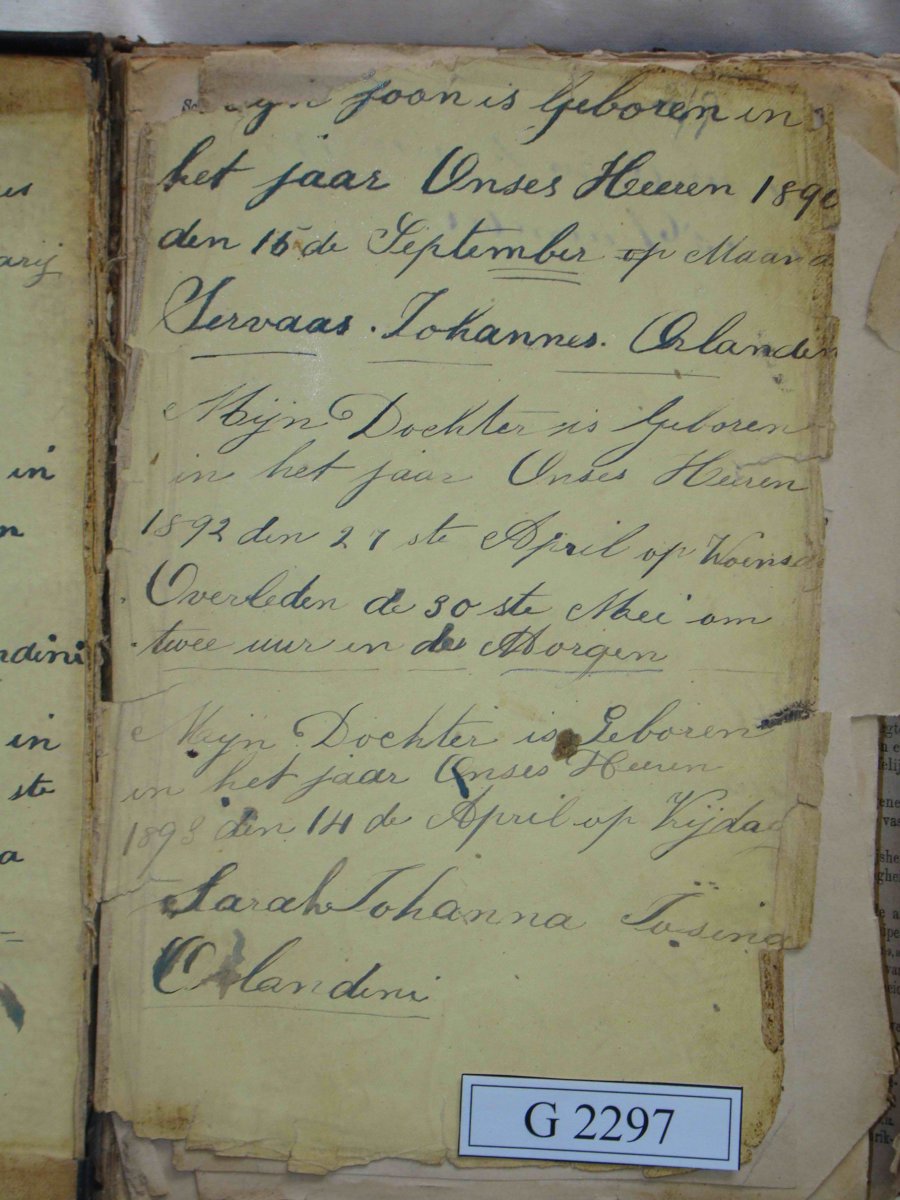 us
arij
in
n
ndini
in
ste
a
Mijn Soon is Geboren in
het jaar Onses Heeren 1890
den 15 de September op Maanda
Servaas. Johannes. Orlandin
Mijn Dochter is Geboren
in het jaar Onses Heeren
1892 den 27 ste April op Woensda
Overleden de 30 ste Mei om
twee uur in de Morgen
Mijn Dochter is Geboren
in het jaar Onses Heeren
1893 den 14 de April op Vrijdag
Sarah Johanna Josina
Orlandini
G 2297